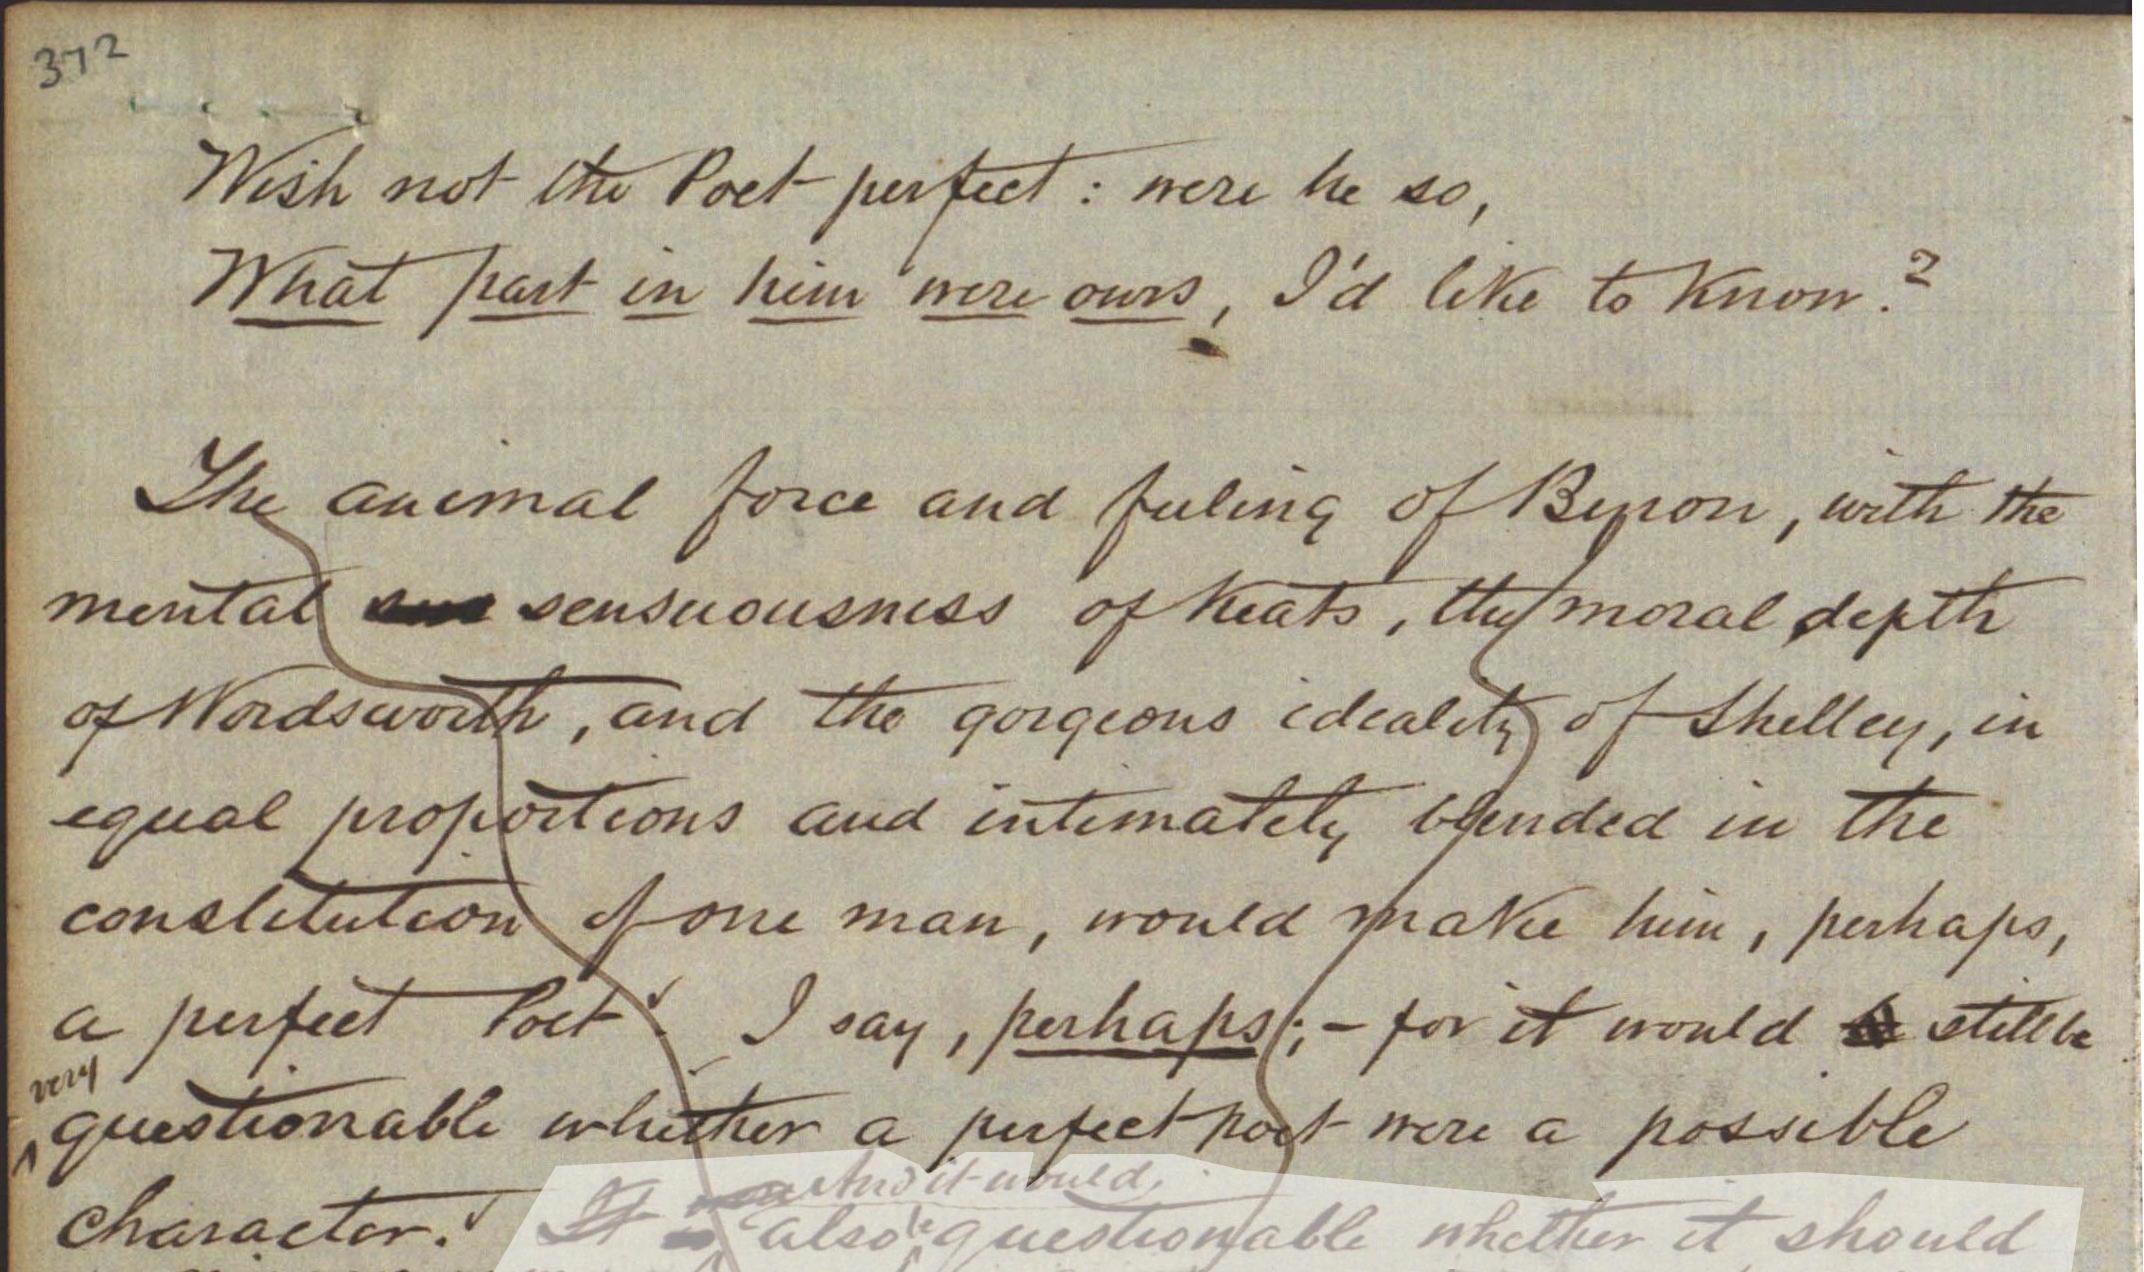 372
Wish not the Poet perfect: were he so,
What part in him were ours, I'd like to know.?
The animal force and feeling of Byron, with the
mental sensuousness of Keats, the moral depth
of Wordsworth, and the gorgeous ideality of Shelley, in
equal proportions and intimately blended in the
constitution of one man, would make him, perhaps,
a perfect Poet. I say, perhaps; - for it would still be
very
questionable whether a perfect poet were a possible
And it would
character. It also be questionable whether it should